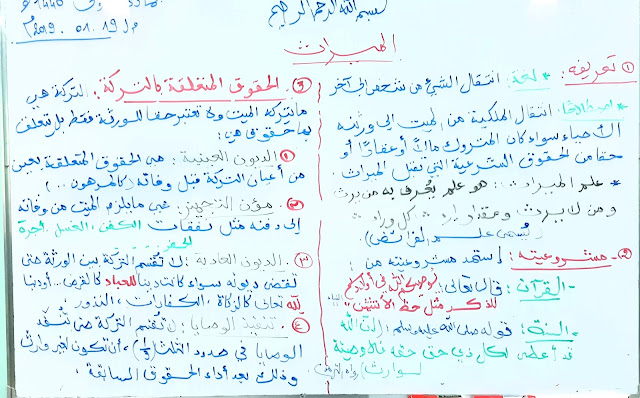 بسم الله الرحمن الرحيم
1440 هـ
19 . 01 . 2019 م
الميراث
① تعريفه :
* لغة : انتقال الشيء من شخص إلى آخر
* اصطلاحا : انتقال الملكية من الميت إلى ورثته
الأحياء سواء كان المتروك مالا أو عقارا أو
حقا من الحقوق الشرعية التي تقبل الميراث .
* علم الميراث : هو علم يُعرف به من يرث
ومن لا يرث ومقدار إرث كل وارث
(يُسمى علم الفرائض)
② مشروعيته : استمد مشروعيته من
- القرآن : قال تعالى : يوصيكم الله في أولادكم
للذكر مثل حظ الأنثيين
- السنة : قوله صلى الله عليه وسلم إن الله
قد أعطى لكل ذي حق حقه فلا وصية
لوارث (رواه الترمذي)
③ الحقوق المتعلقة بالتركة : التركة هي
ما تركه الميت ولا تعتبر حقا للورثة فقط بل تتعلق
بها حقوق هي :
1. الديون العينية : هي الحقوق المتعلقة بعين
من أعيان التركة قبل وفاته (كالمرهون ...)
2. مؤن التجهيز : هي ما يلزم الميت من وفاته
إلى دفنه مثل نفقات الكفن ، الغسل ، أجرة
الحفر
3. الديون العادية : لا تُقسم التركة بين الورثة حتى
تُقضى ديونه سواء كانت دينا للعباد كالقرض .. أو دينا
لله تعالى كالزكاة ، الكفارات ، النذور
4. تنفيذ الوصايا : لا تُقسم التركة حتى تُنفَّذ
الوصايا في حدود الثلث (1/3) ، أن تكون لغير وارث
وذلك بعد أداء الحقوق السابقة .